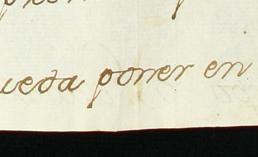 ueda poner en